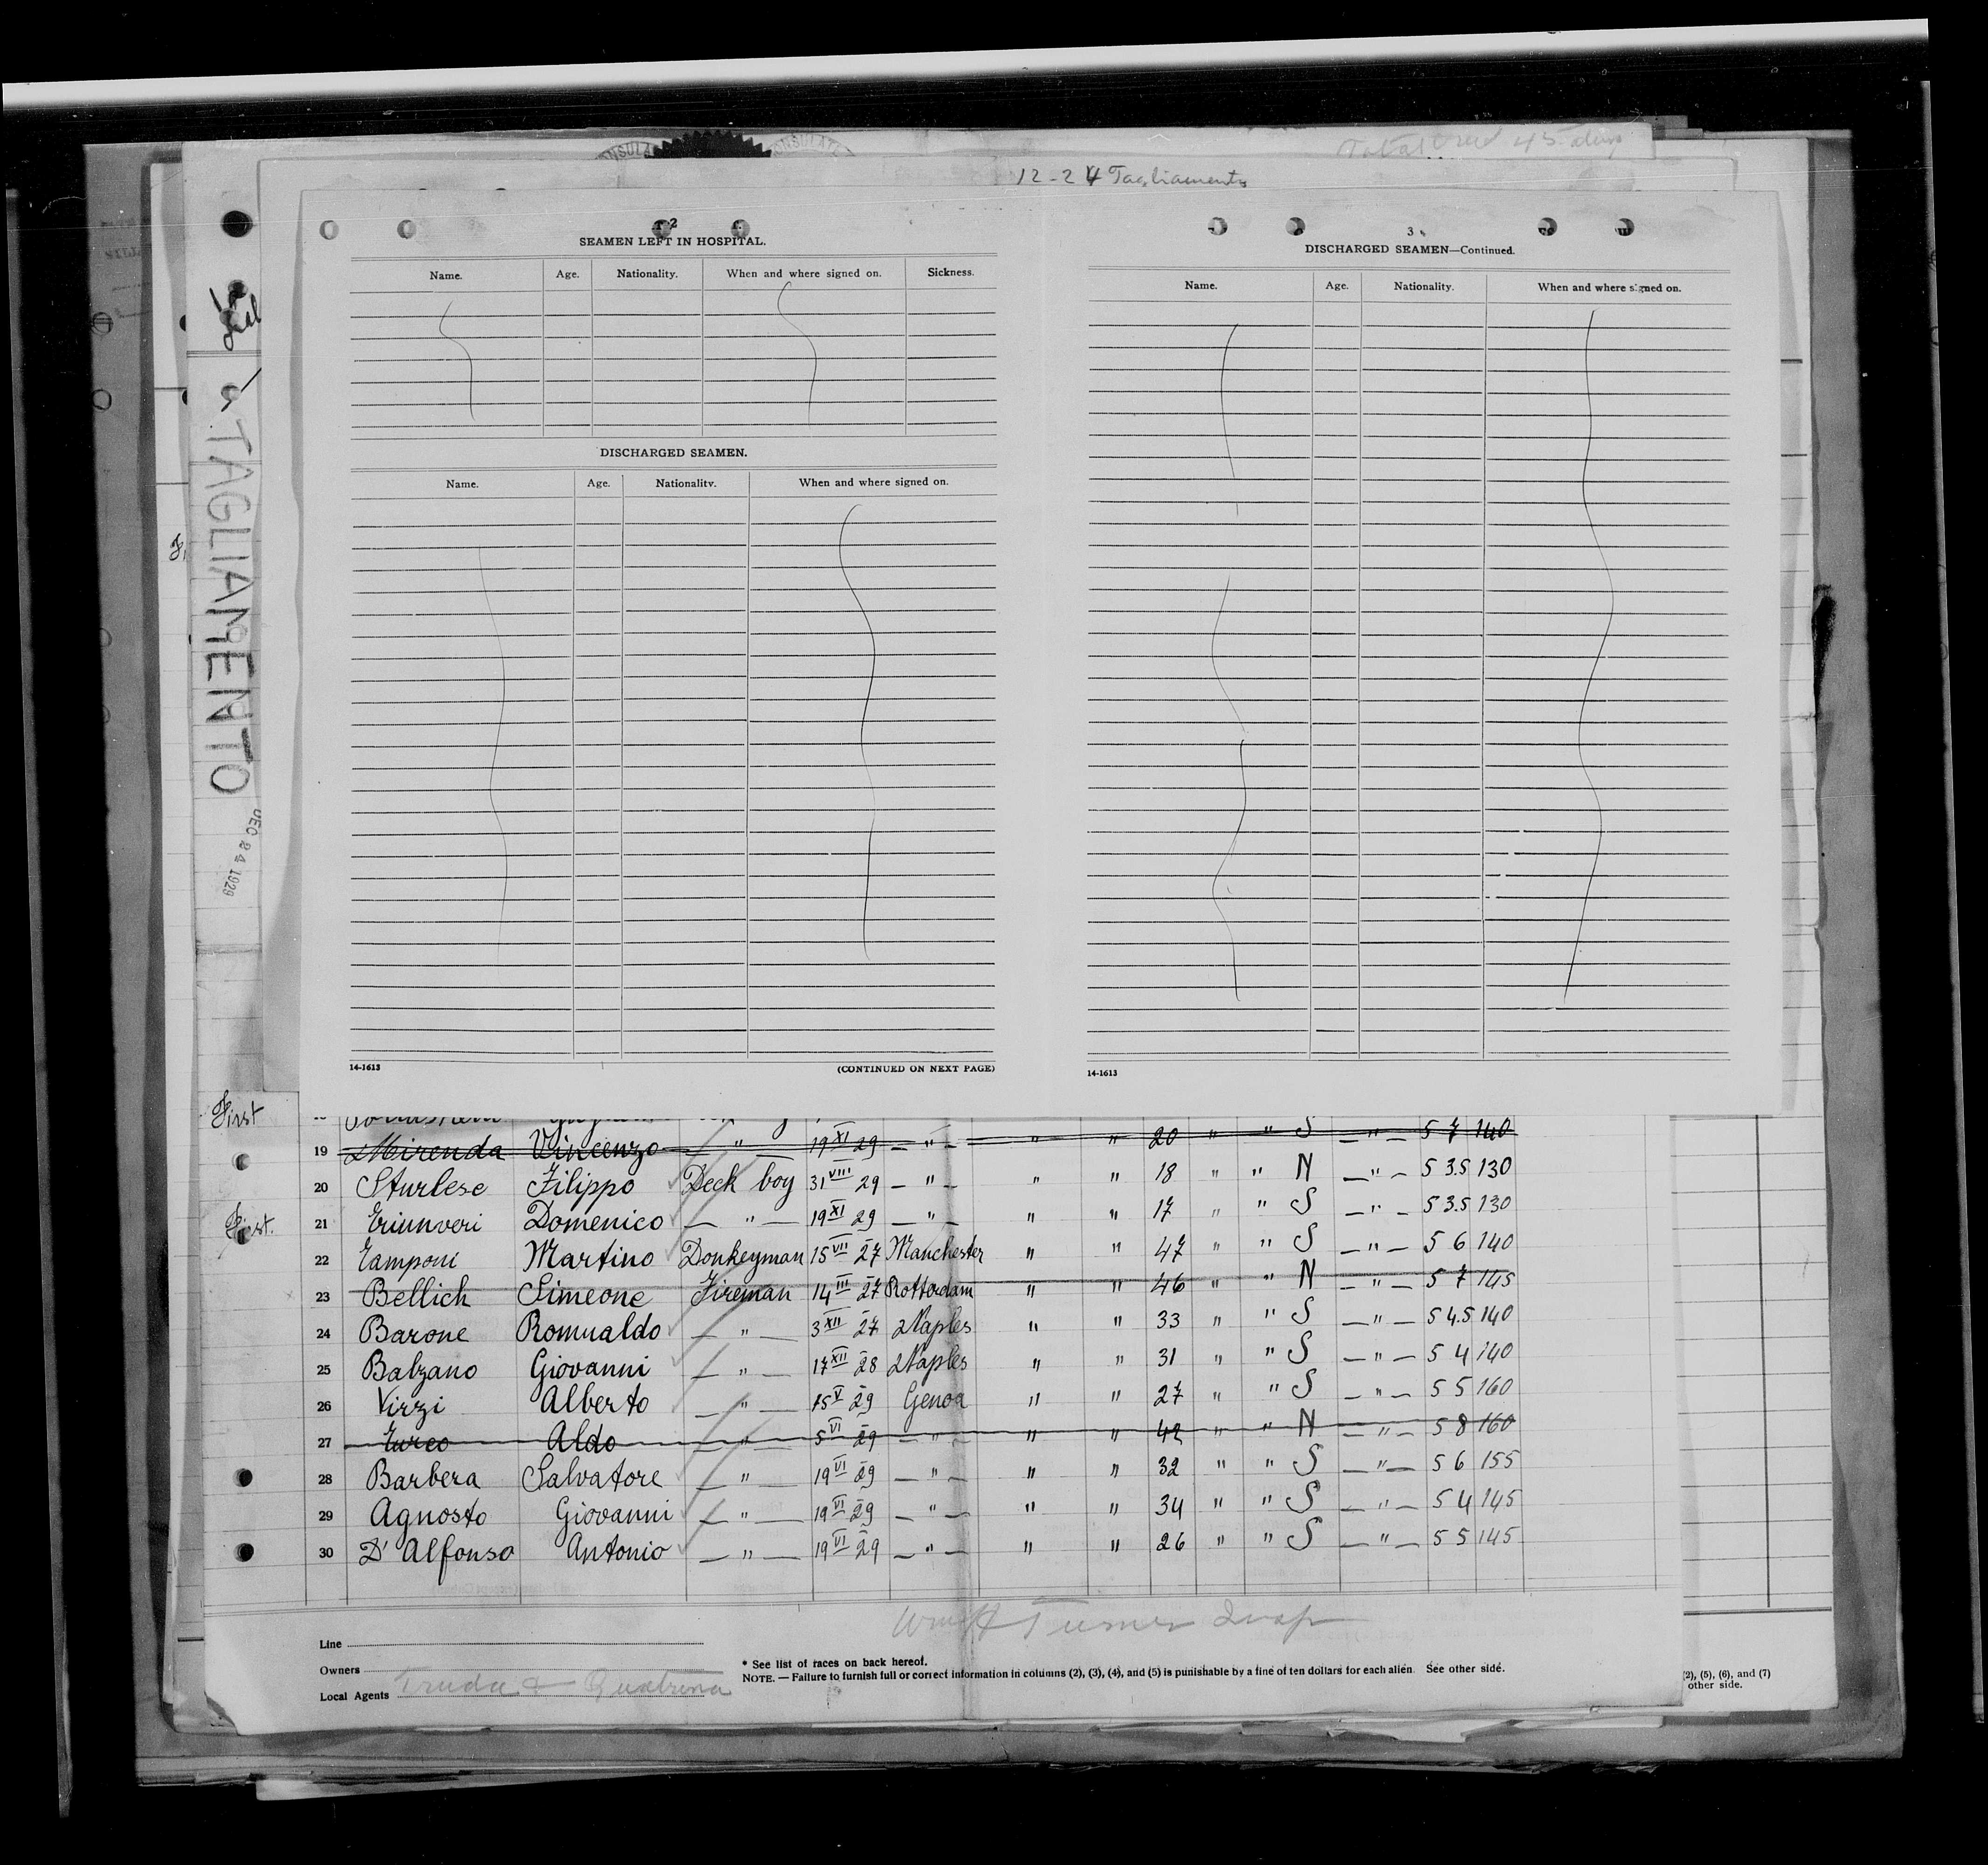 12-24 Tagliamento
TAGLIAMENTO
DEC 24 1929
2
SEAMEN LEFT IN HOSPITAL.
Name. Age. Nationality. When and where signed on. Sickness.
DISCHARGED SEAMEN.
Name. Age. Nationality. When and where signed on.
14-1613 (CONTINUED ON NEXT PAGE)
3
DISCHARGED SEAMEN—Continued.
Name. Age. Nationality. When and where signed on.
14-1613
First
19 Mirenda Vincenzo " 19 XI 29 — " — " " 20 " " S — " — 5 7 140
20 Sturlese Filippo Deck boy 31 VIII 29 — " — " " 18 " " N — " — 5 3.5 130
First.
21 Domenico — " — 19 XI 29 — " — " " 17 " " S — " — 5 3.5 130
22 Tamponi Martino Donkeyman 15 VII 27 Manchester " " 47 " " S — " — 5 6 140
23 Bellich Simeone Fireman 14 III 27 Rotterdam " " 46 " " N — " — 5 7 145
24 Barone Romualdo — " — 3 XII 27 Naples " " 33 " " S — " — 5 4.5 140
25 Balzano Giovanni — " — 17 XII 28 Naples " " 31 " " S — " — 5 4 140
26 Virzi Alberto — " — 15 V 29 Genoa " " 27 " " S — " — 5 5 160
27 Turco Aldo — " — 5 VI 29 — " — " " 42 " " N — " — 5 8 160
28 Barbera Salvatore — " — 19 VI 29 — " — " " 32 " " S — " — 5 6 155
29 Agnosto Giovanni — " — 19 VI 29 — " — " " 34 " " S — " — 5 4 145
30 D'Alfonso Antonio — " — 19 VI 29 — " — " " 26 " " S — " — 5 5 145
Turner Insp
Line
Owners
Local Agents
* See list of races on back hereof.
NOTE. — Failure to furnish full or correct information in columns (2), (3), (4), and (5) is punishable by a fine of ten dollars for each alien. See other side.
(2), (5), (6), and (7)
other side.